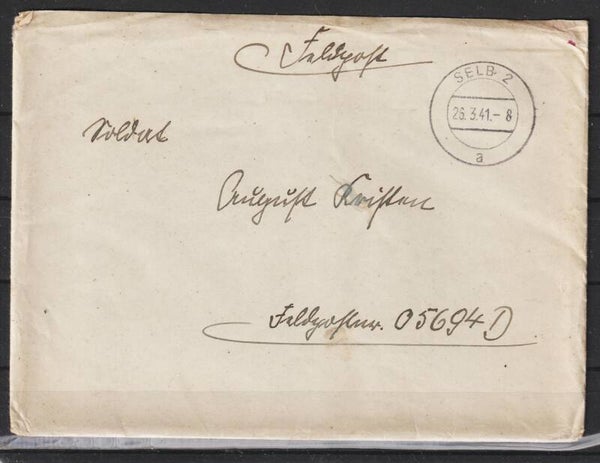 Feldpost
SELB 2
26.3.41.- 8
a
Soldat
August Kristen
Feldpostnr. 05694 D